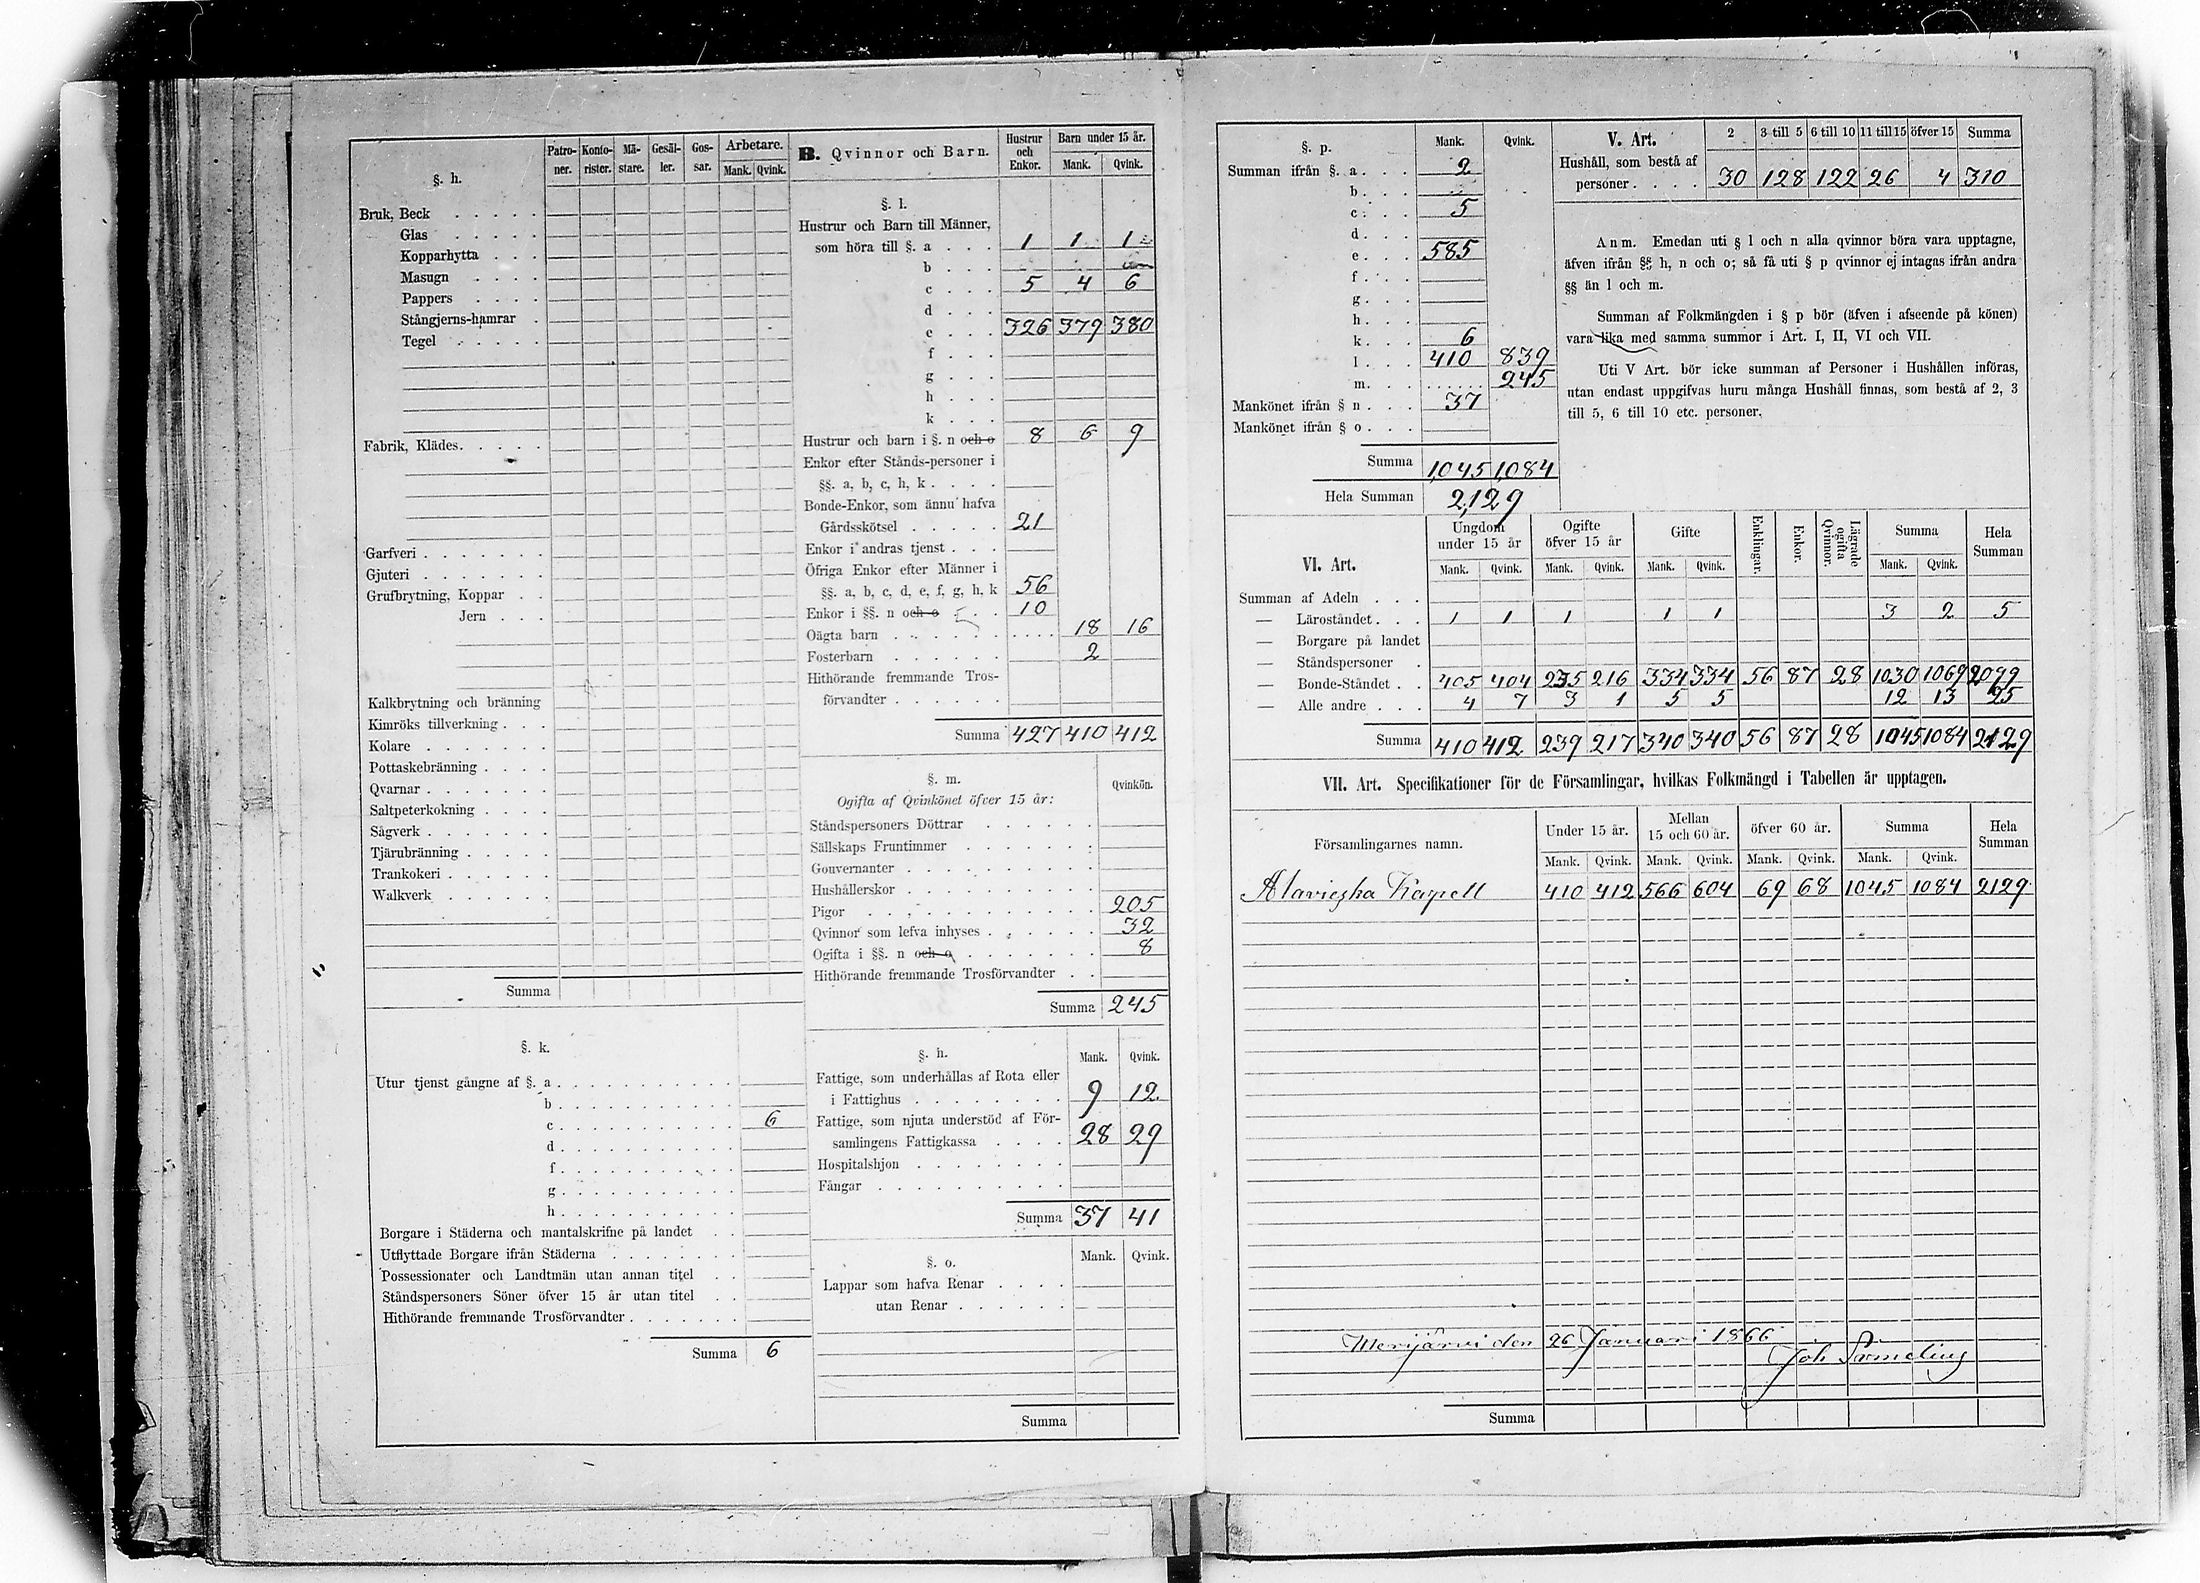 §. h.
Patro-ner. Konto-rister. Mä-stare. Gesäl-ler. Gos-sar. Arbetare. Mank. Qvink.
Bruk, Beck
Glas
Kopparhytta
Masugn
Pappers
Stångjerns-hamrar
Tegel
Fabrik, Klädes
Garfveri
Gjuteri
Grufbrytning, Koppar
Jern
Kalkbrytning och bränning
Kimröks tillverkning
Kolare
Pottaskebränning
Qvarnar
Saltpeterkokning
Sågverk
Tjärubränning
Trankokeri
Walkverk
Summa
§. k.
Utur tjenst gångne af §. a
b
c 6
d
f
g
h
Borgare i Städerna och mantalskrifne på landet
Utflyttade Borgare ifrån Städerna
Possessionater och Landtmän utan annan titel
Ståndspersoners Söner öfver 15 år utan titel
Hithörande fremmande Trosförvandter
Summa 6
B. Qvinnor och Barn. Hustrur och Enkor. Barn under 15 år. Mank. Qvink.
§. l.
Hustrur och Barn till Männer,
som höra till §. a 1 1 1
b
c 5 4 6
d
e 326 379 380
f
g
h
k
Hustrur och barn i §. n och o 8 6 9
Enkor efter Stånds-personer i
§§. a, b, c, h, k
Bonde-Enkor, som ännu hafva
Gårdsskötsel 21
Enkor i andras tjenst
Öfriga Enkor efter Männer i
§§. a, b, c, d, e, f, g, h, k 56
Enkor i §§. n och o 10
Oägta barn 18 16
Fosterbarn 2
Hithörande fremmande Tros-
förvandter
Summa 427 410 412
§. m.
Ogifta af Qvinkönet öfver 15 år: Qvinkön.
Ståndspersoners Döttrar
Sällskaps Fruntimmer
Gouvernanter
Hushållerskor
Pigor 205
Qvinnor som lefva inhyses 32
Ogifta i §§. n och o 8
Hithörande fremmande Trosförvandter
Summa 245
§. n. Mank. Qvink.
Fattige, som underhållas af Rota eller
i Fattighus 9 12
Fattige, som njuta understöd af För-
samlingens Fattigkassa 28 29
Hospitalshjon
Fångar
Summa 37 41
§. o. Mank. Qvink.
Lappar som hafva Renar
utan Renar
Summa
§. p. Mank. Qvink.
Summan ifrån §. a 2
b
c 5
d
e 585
f
g
h
k 6
l 410 839
m 245
Mankönet ifrån § n 37
Mankönet ifrån § o
Summa 1,045 1,084
Hela Summan 2,129
V. Art. 2 3 till 5 6 till 10 11 till 15 öfver 15 Summa
Hushåll, som bestå af
personer 30 128 122 26 4 310
Anm. Emedan uti § l och n alla qvinnor böra vara upptagne,
äfven ifrån §§ h, n och o; så få uti § p qvinnor ej intagas ifrån andra
§§ än l och m.
Summan af Folkmängden i § p bör (äfven i afseende på könen)
vara lika med samma summor i Art. I, II, VI och VII.
Uti V Art. bör icke summan af Personer i Hushållen införas,
utan endast uppgifvas huru många Hushåll finnas, som bestå af 2, 3
till 5, 6 till 10 etc. personer.
VI. Art. Ungdom under 15 år Ogifte öfver 15 år Gifte Enklingar. Enkor. Lägrade ogifta Qvinnor. Summa Hela Summan
Mank. Qvink. Mank. Qvink. Mank. Qvink. Mank. Qvink.
Summan af Adeln
— Läroståndet 1 1 1 1 1 3 2 5
— Borgare på landet
— Ståndspersoner
— Bonde-Ståndet 405 404 235 216 334 334 56 87 28 1030 1069 2099
— Alle andre 4 7 3 1 5 5 12 13 25
Summa 410 412 239 217 340 340 56 87 28 1045 1084 2129
VII. Art. Specifikationer för de Församlingar, hvilkas Folkmängd i Tabellen är upptagen.
Församlingarnes namn. Under 15 år. Mellan 15 och 60 år. öfver 60 år. Summa Hela Summan
Mank. Qvink. Mank. Qvink. Mank. Qvink. Mank. Qvink.
Alavieska Kapell 410 412 566 604 69 68 1045 1084 2129
Merijärvi den 26 Januari 1866
Joh Snmeling
Summa